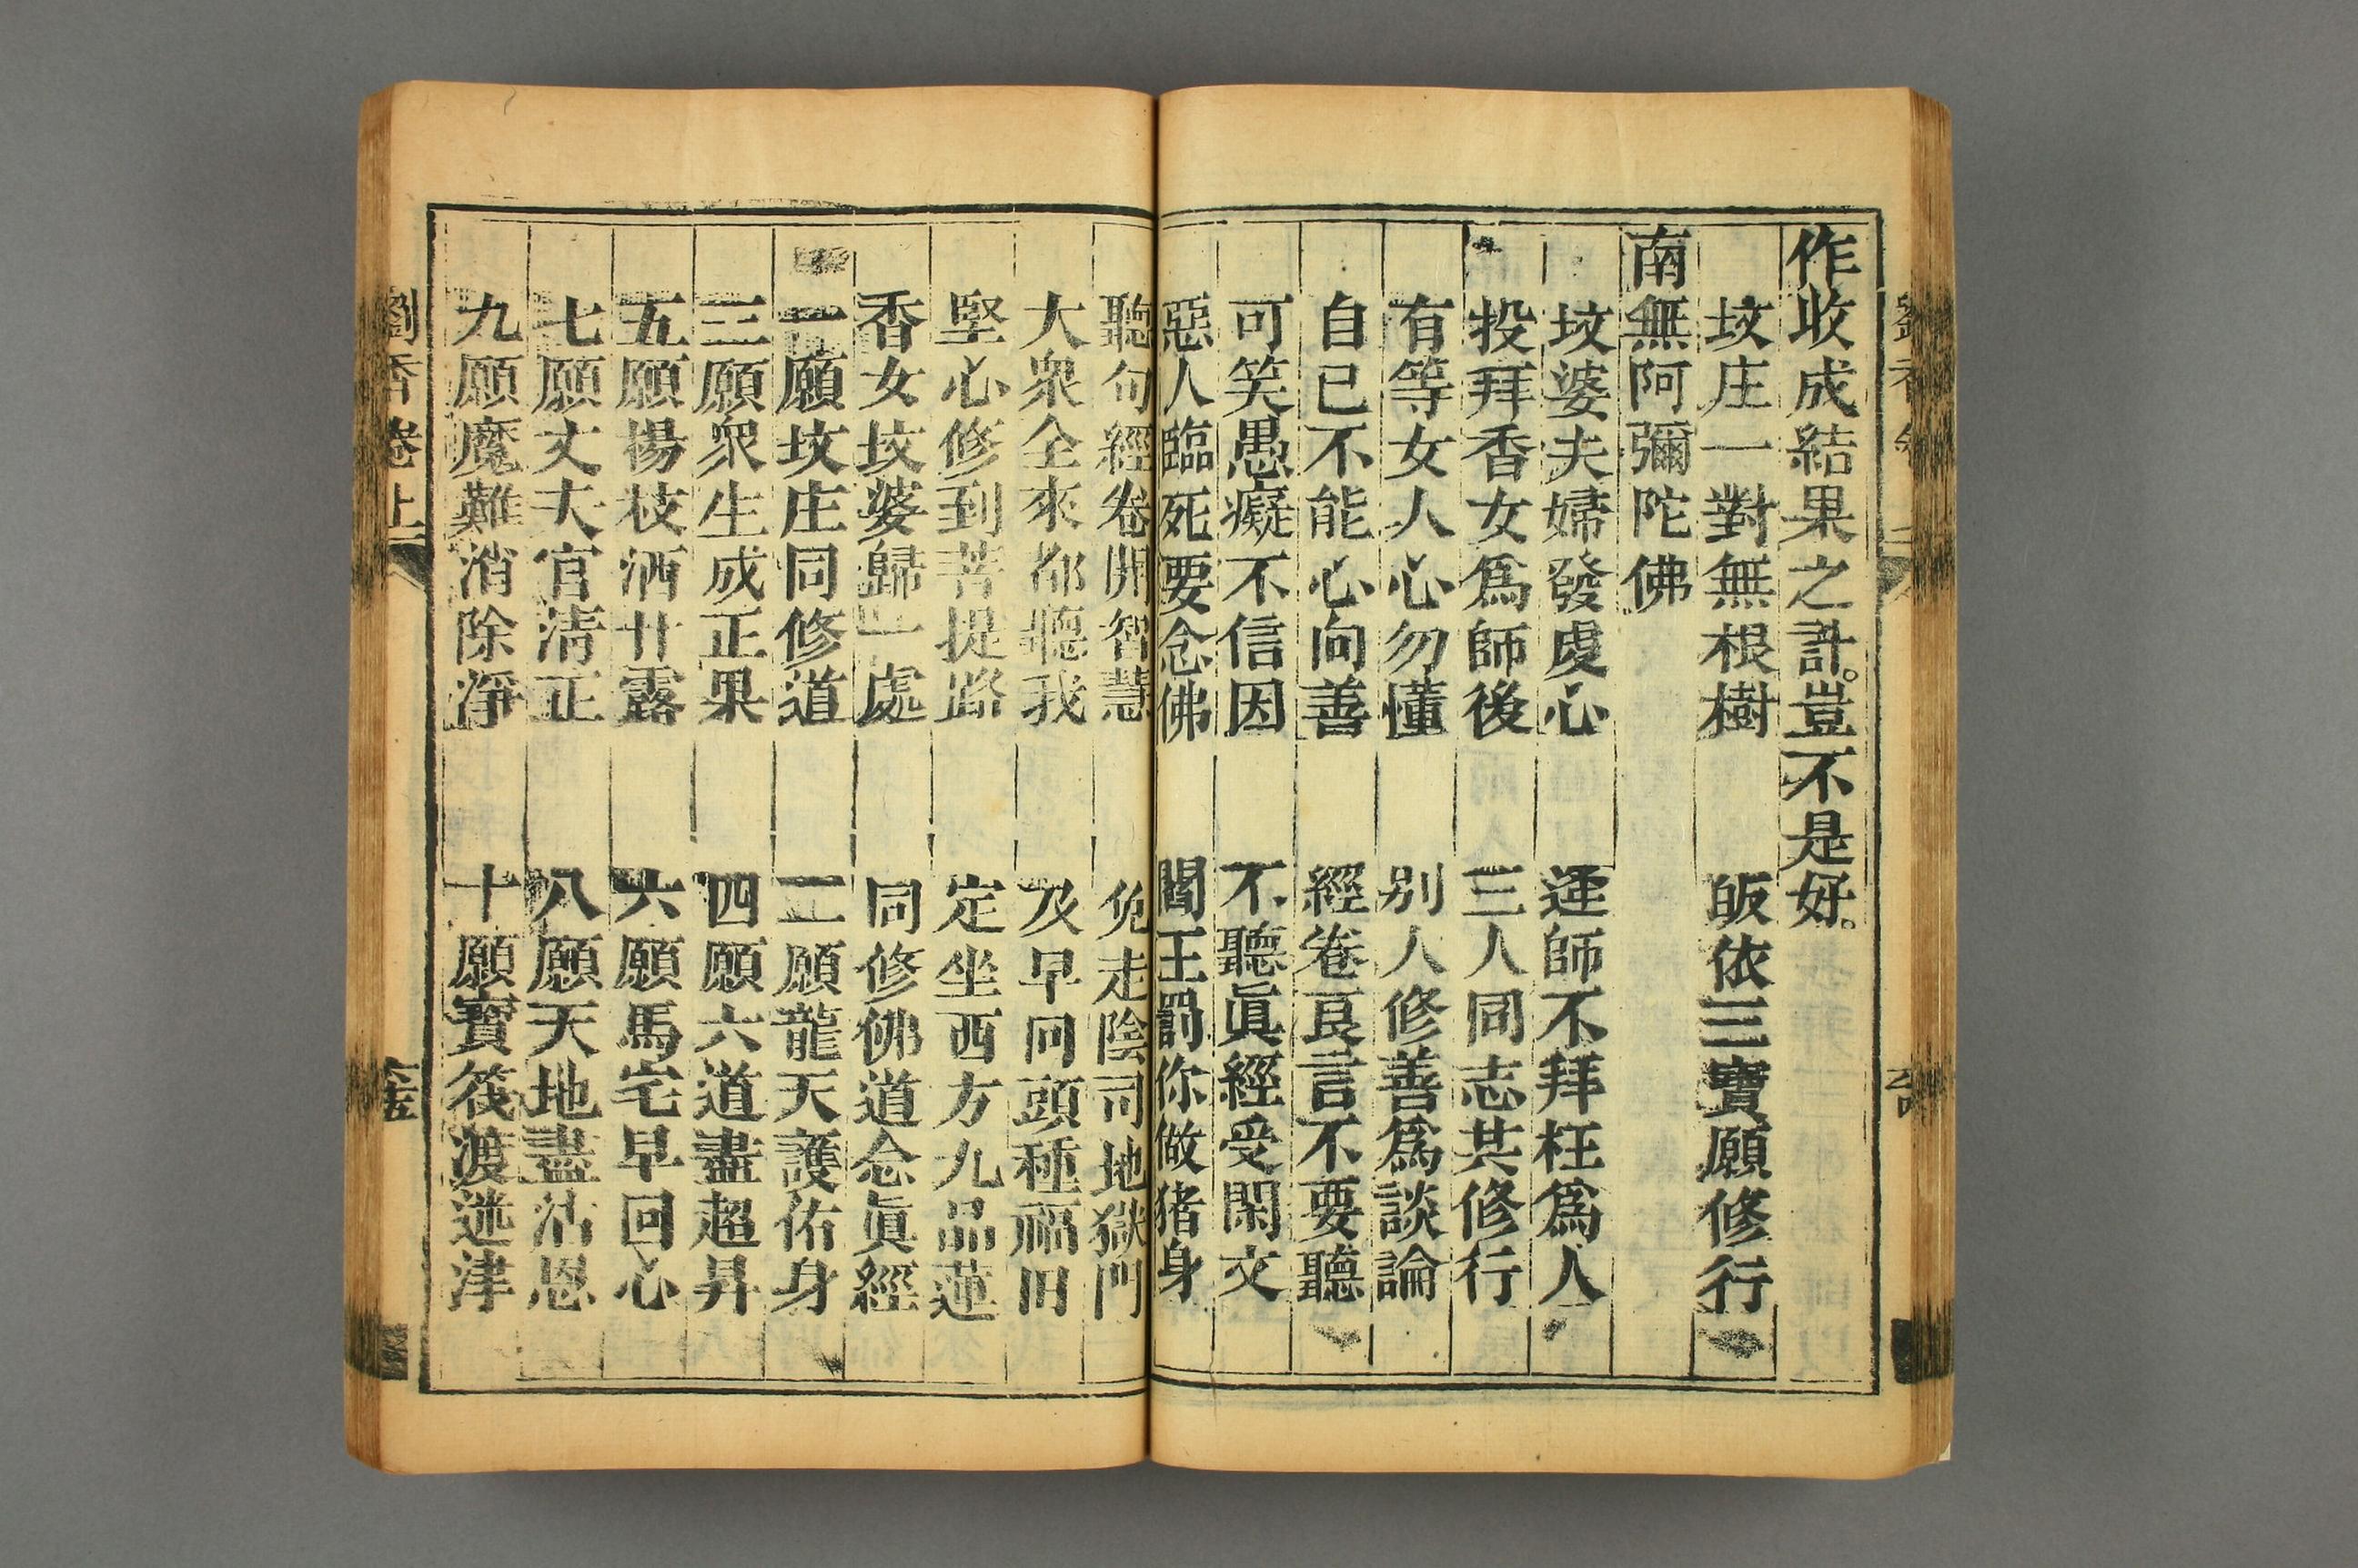 作收成結果之計。豈不是好。
坟庄一對無根樹 皈依三寶願修行
南無阿彌陀佛
坟婆夫婦發虔心 運師不拜枉爲人
投拜香女爲師後 三人同志共修行
有等女人心勿懂 别人修善爲談論
自已不能心向善 經卷良言不要聽
可笑愚癡不信因 不聽眞經受閑文
惡人臨死要念佛 閻王罰你做猪身
聽句經卷開智慧 免走陰司地獄門
大衆全來都聽我 及早回頭種福田
堅心修到菩提路 定坐西方九品蓮
香女坟婆歸一處 同修佛道念眞經
一願坟庄同修道 二願龍天護佑身
三願衆生成正果 四願六道盡超昇
五願楊枝洒甘露 六願馬宅早回心
七願丈夫官清正 八願天地盡沾恩
九願魔難消除淨 十願寶筏渡迷津
劉香卷上